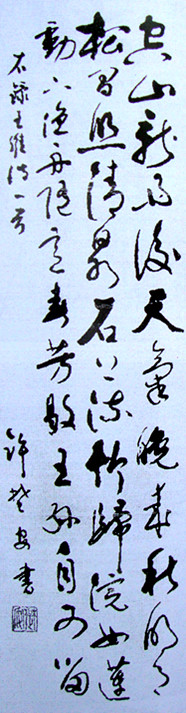 空山新雨後天氣晚來秋明月
松間照清泉石上流竹歸浣女蓮
動下漁舟隨意春芳歇王孫自可留
右錄王維詩一首
許楚安書